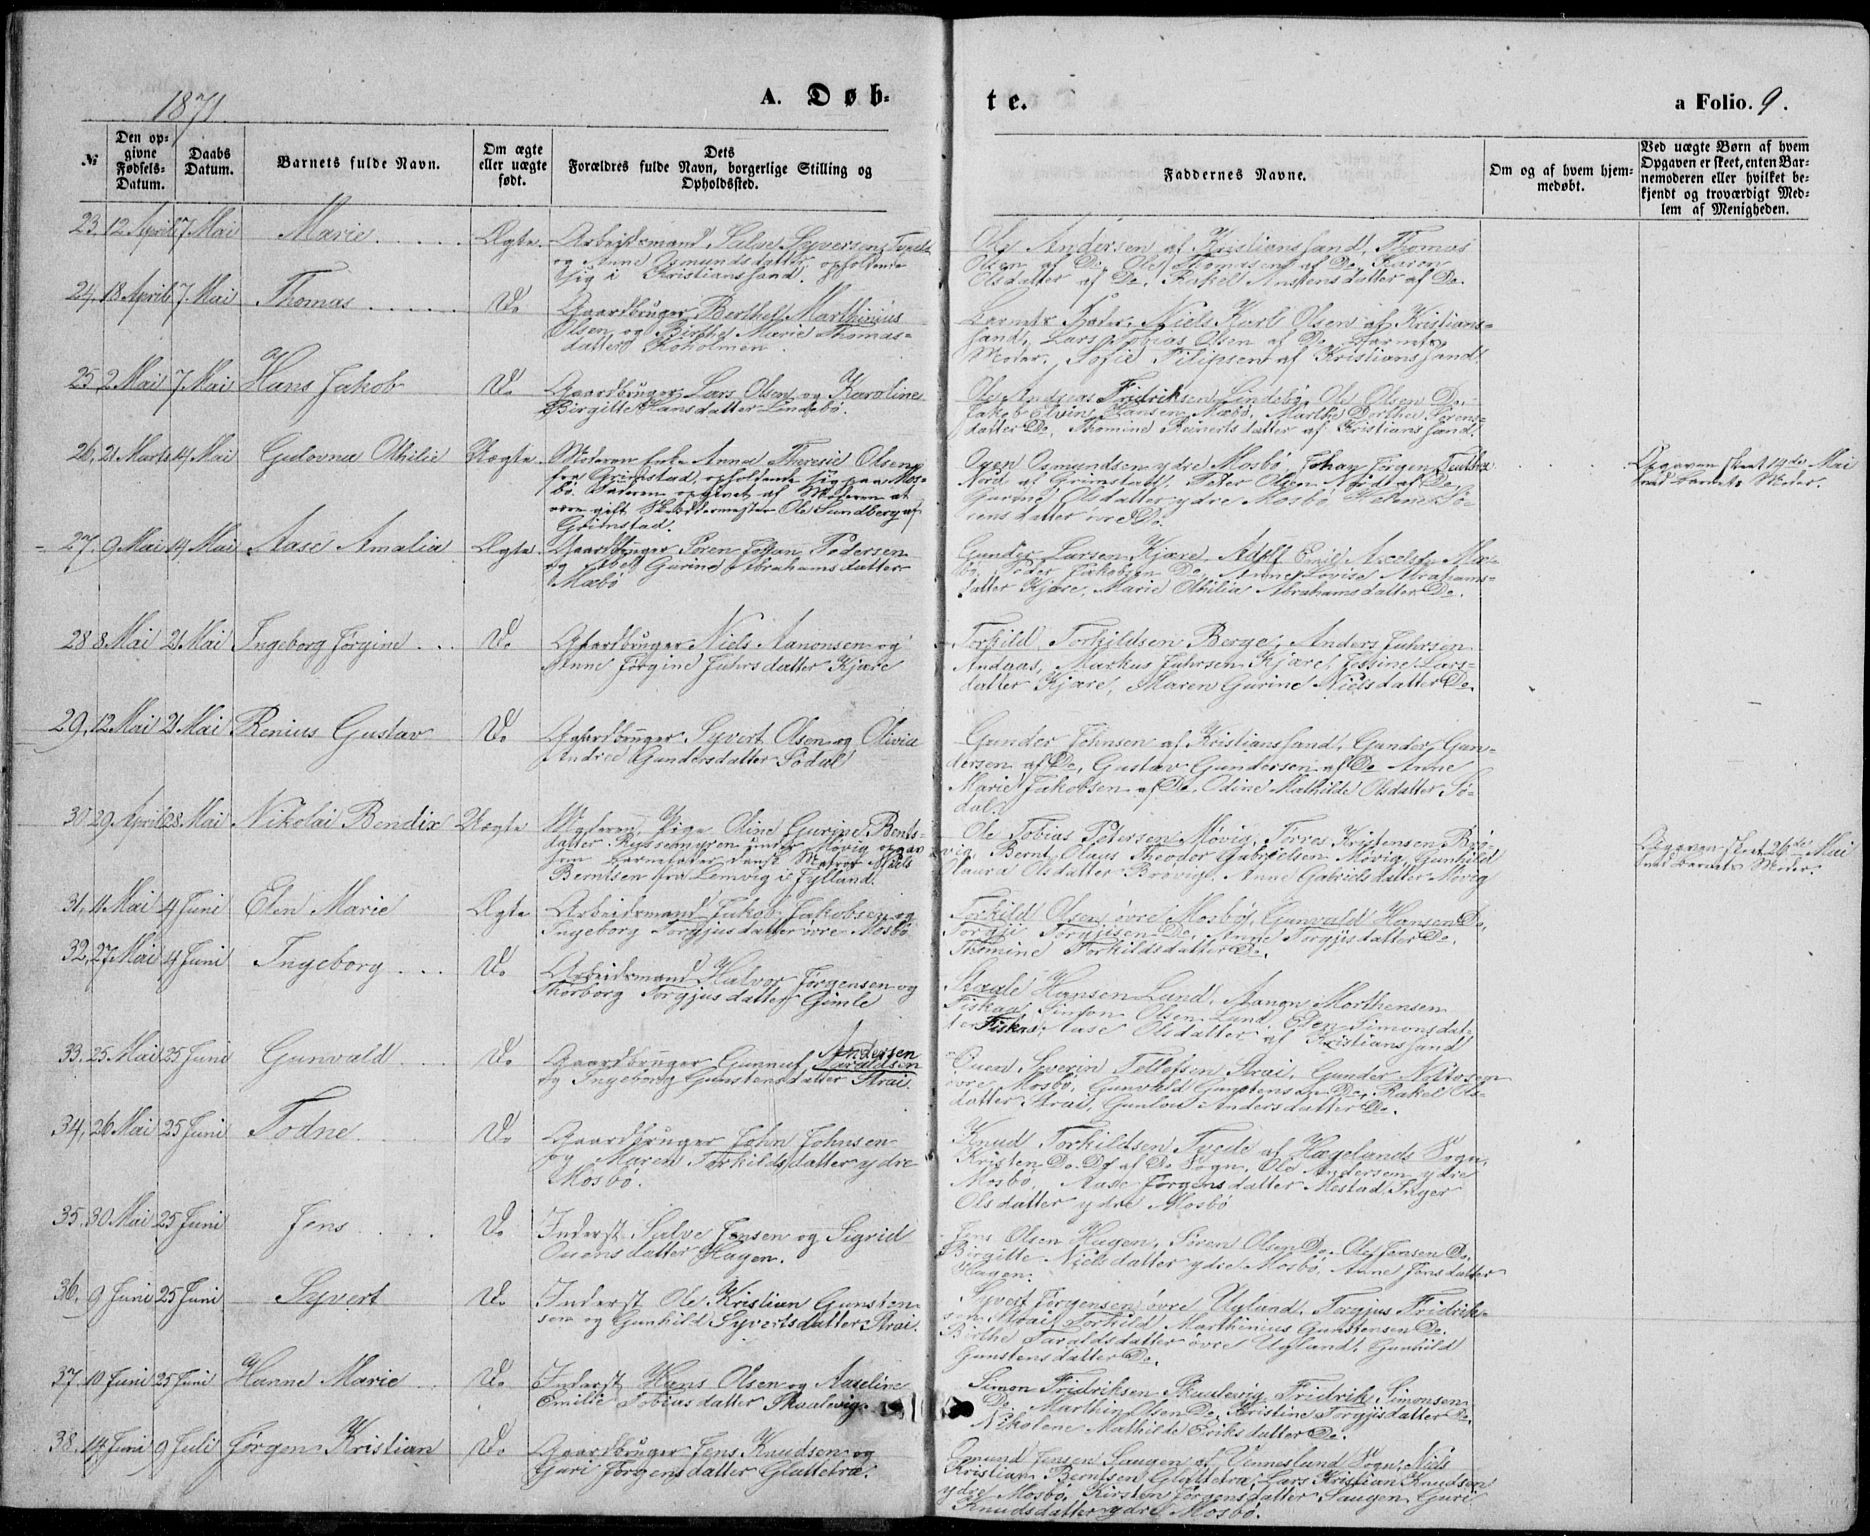 1871.
A. Døb-
te.
a Folio. 9.
№
Den op-
givne
Fødsels-
Datum.
Daabs
Datum.
Barnets fulde Navn.
Om ægte
eller uægte
født.
Dets
Forældres fulde Navn, borgerlige Stilling og
Opholdssted.
Faddernes Navne.
Om og af hvem hjem-
medøbt.
Ved uægte Børn af hvem
Opgaven er skeet, enten Bar-
nemoderen eller hvilket be-
kjendt og troværdigt Med-
lem af Menigheden.
23, 12 April 7 Mai Marie Ægte
Arbeidsmand Salve Syversen
og Anne Osmundsdatter opholdende
sig i Kristianssand.
Ole Andersen af Kristianssand, Thomas
Olsen af Do, Ole Thomassen af Do, Karen
Olsdatter af Do, Rakel Anstensdatter af Do.
24, 18 April 7. Mai Thomas Do
Gaardbruger Berthel Marthinius
Olsen og Birthe Marie Thomas-
datter Koholmen.
Barnets Fader, Niels Karl Olsen af Kristians-
sand, Lars Tobias Olsen af Do, Barnets
Moder, Sofie Filipsen af Kristianssand.
25, 2 Mai 7 Mai Hans Jakob Do
Gaardbruger Lars Olsen og Karoline
Birgitte Hansdatter Lindebø.
Ole Andreas Fridriksen Lindebø, Ole Olsen Do.
Jakob Elvin Hansen Mæbø, Marthe Dorthea Sørens-
datter Do, Thomine Reinertsdatter af Kristianssand.
26, 21 Marts 14 Mai Gulovna Othilie Uægte
Moderen Enke Anna Theresie Olsen
fra Grimstad, opholdende sig paa Mos-
bø. Faderen opgivet af Moderen at
være gift Skibstømmester Ole Sundberg af
Grimstad.
Ogen Osmundsen ydre Mosbø, Johan Jørgen
Nord af Grimstad, Peter Olsen Nord af Do,
Gurine Olsdatter ydre Mosbø, Sø-
rensdatter øvre Do.
Opgaven skeet 14de Mai
ved Barnets Moder.
27, 9 Mai 14 Mai Aase Amalia Ægte
Gaardbruger Søren Johan Pedersen
og Abel Gurine Abrahamsdatter
Mæbø
Gunder Larsen Kjære, Adolf Emil Axelsen Mæ-
bø, Peder Jakobsen Do, Anne Lovise Abrahams-
datter Kjære, Marie Othilia Abrahamsdatter Do.
28 8 Mai 21 Mai Ingeborg Jørgine Do
Gaardbruger Niels Aanonsen og
Anne Jørgine Juhrsdatter Kjære
Torkild Torkildsen Berge, Anders Juhrsen
Andaas, Markus Juhrsen Kjære, Tessine Lars-
datter Kjære, Maren Gurine Nielsdatter Do.
29, 12 Mai 21 Mai Renius Gustav Do
Gaardbruger Syvert Olsen og Olivia
Andrea Gundersdatter Sødal
Gunder Johnsen af Kristianssand, Gunder Gun-
dersen af Do, Gustav Gundersen af Do Anne
Marie Jakobsen af Do, Odine Mathilde Olsdatter Sø-
dal.
30 29 April 28 Mai Nikolai Bendix Uægte
Moderen Pige Oline Gurine Bents-
datter Ryssemyren under Møvig opgav
som Barnefader dansk Matros Niels
Berntsen fra Lemvig i Jylland.
Ole Tobias Petersen Møvig, Tørres Kristensen Brø-
vig, Bernt Olaus Theodor Gabrielsen Møvig, Gunhild
Laura Olsdatter Brøvig, Anne Gabrielsdatter Møvig
Opgaven skeet 26de Mai
ved Barnets Moder.
31, 11 Mai 4 Juni Elen Marie Ægte
Arbeidsmand Jakob Jakobsen og
Ingeborg Torgjusdatter øvre Mosbø
Torkild Olsen øvre Mosbø, Gunvald Hansen Do,
Torgji Torgjisen Do, Anne Torgjisdatter Do,
Thomine Torkildsdatter Do.
32, 27 Mai 4 Juni Ingeborg Do
Arbeidsmand Halvor Jørgensen og
Thorborg Torgjusdatter Gimle
Staale Hansen Lund, Aanon Morthensen
Fiskaa, Simon Olsen Lund, Elen Simonsdat-
ter Fiskaa, Aase Olsdatter af Kristianssand
33, 25 Mai 25 Juni Gunvald Do
Gaardbruger Gunnuf Taraldsen Andersen
og Ingeborg Gunstensdatter Strai.
Ouen Severin Tellefsen Strai, Gunder
øvre Mosbø, Gunvald Gunstensen Do, Rakel Ols-
datter Strai, Gunlou Andersdatter Do.
34, 26 Mai 25 Juni Todne Do
Gaardbruger John Johnsen
og Maren Torkildsdatter ydre
Mosbø.
Knud Torkildsen Tvede af Hægelands Sogn,
Kristen Do. Do af Do Sogn, Ole Andersen ydre
Mosbø, Aase Jørgensdatter Mestad, Inger
Olsdatter ydre Mosbø
35. 30 Mai 25 Juni Jens Do
Inderst Salve Jensen og Sigrid
Ouensdatter Hagen.
Jens Olsen Hagen, Søren Olsen Do, Ole Jensen Do,
Birgitte Nielsdatter ydre Mosbø, Anne Jensdatter
Hagen.
36, 9 Juni 25 Juni Syvert Do
Inderst Ole Kristian Gunsten-
sen og Gunhild Syvertsdatter Strai.
Syvert Jørgensen øvre Uglund, Torgjus Fridrik-
sen Strai, Torkild Marthinius Gunstensen Do.
Birthe Taraldsdatter øvre Uglund, Gunhild
Gunstensdatter Do.
37, 10 Juni 25 Juni Hanne Marie Do
Inderst Hans Olsen og Aaseline
Emilie Tobiasdatter Skaalevig.
Simon Fridriksen Skaalevig, Fridrik Simonsen
Do, Marthin Olsen Do, Kristine Torgjisdatter Do,
Nikolene Mathilde Eriksdatter Do.
38, 14 Juni 9 Juli Jørgen Kristian Do
Gaardbruger Jens Knudsen og
Guri Jørgensdatter Glattetræ.
Omund Jensen Saugen af Venneslund Sogn, Niels
Kristian Berntsen Glattetræ, Lars Kristian Knudsen
ydre Mosbø, Kirsten Jørgensdatter Saugen, Guri
Knudsdatter ydre Mosbø.